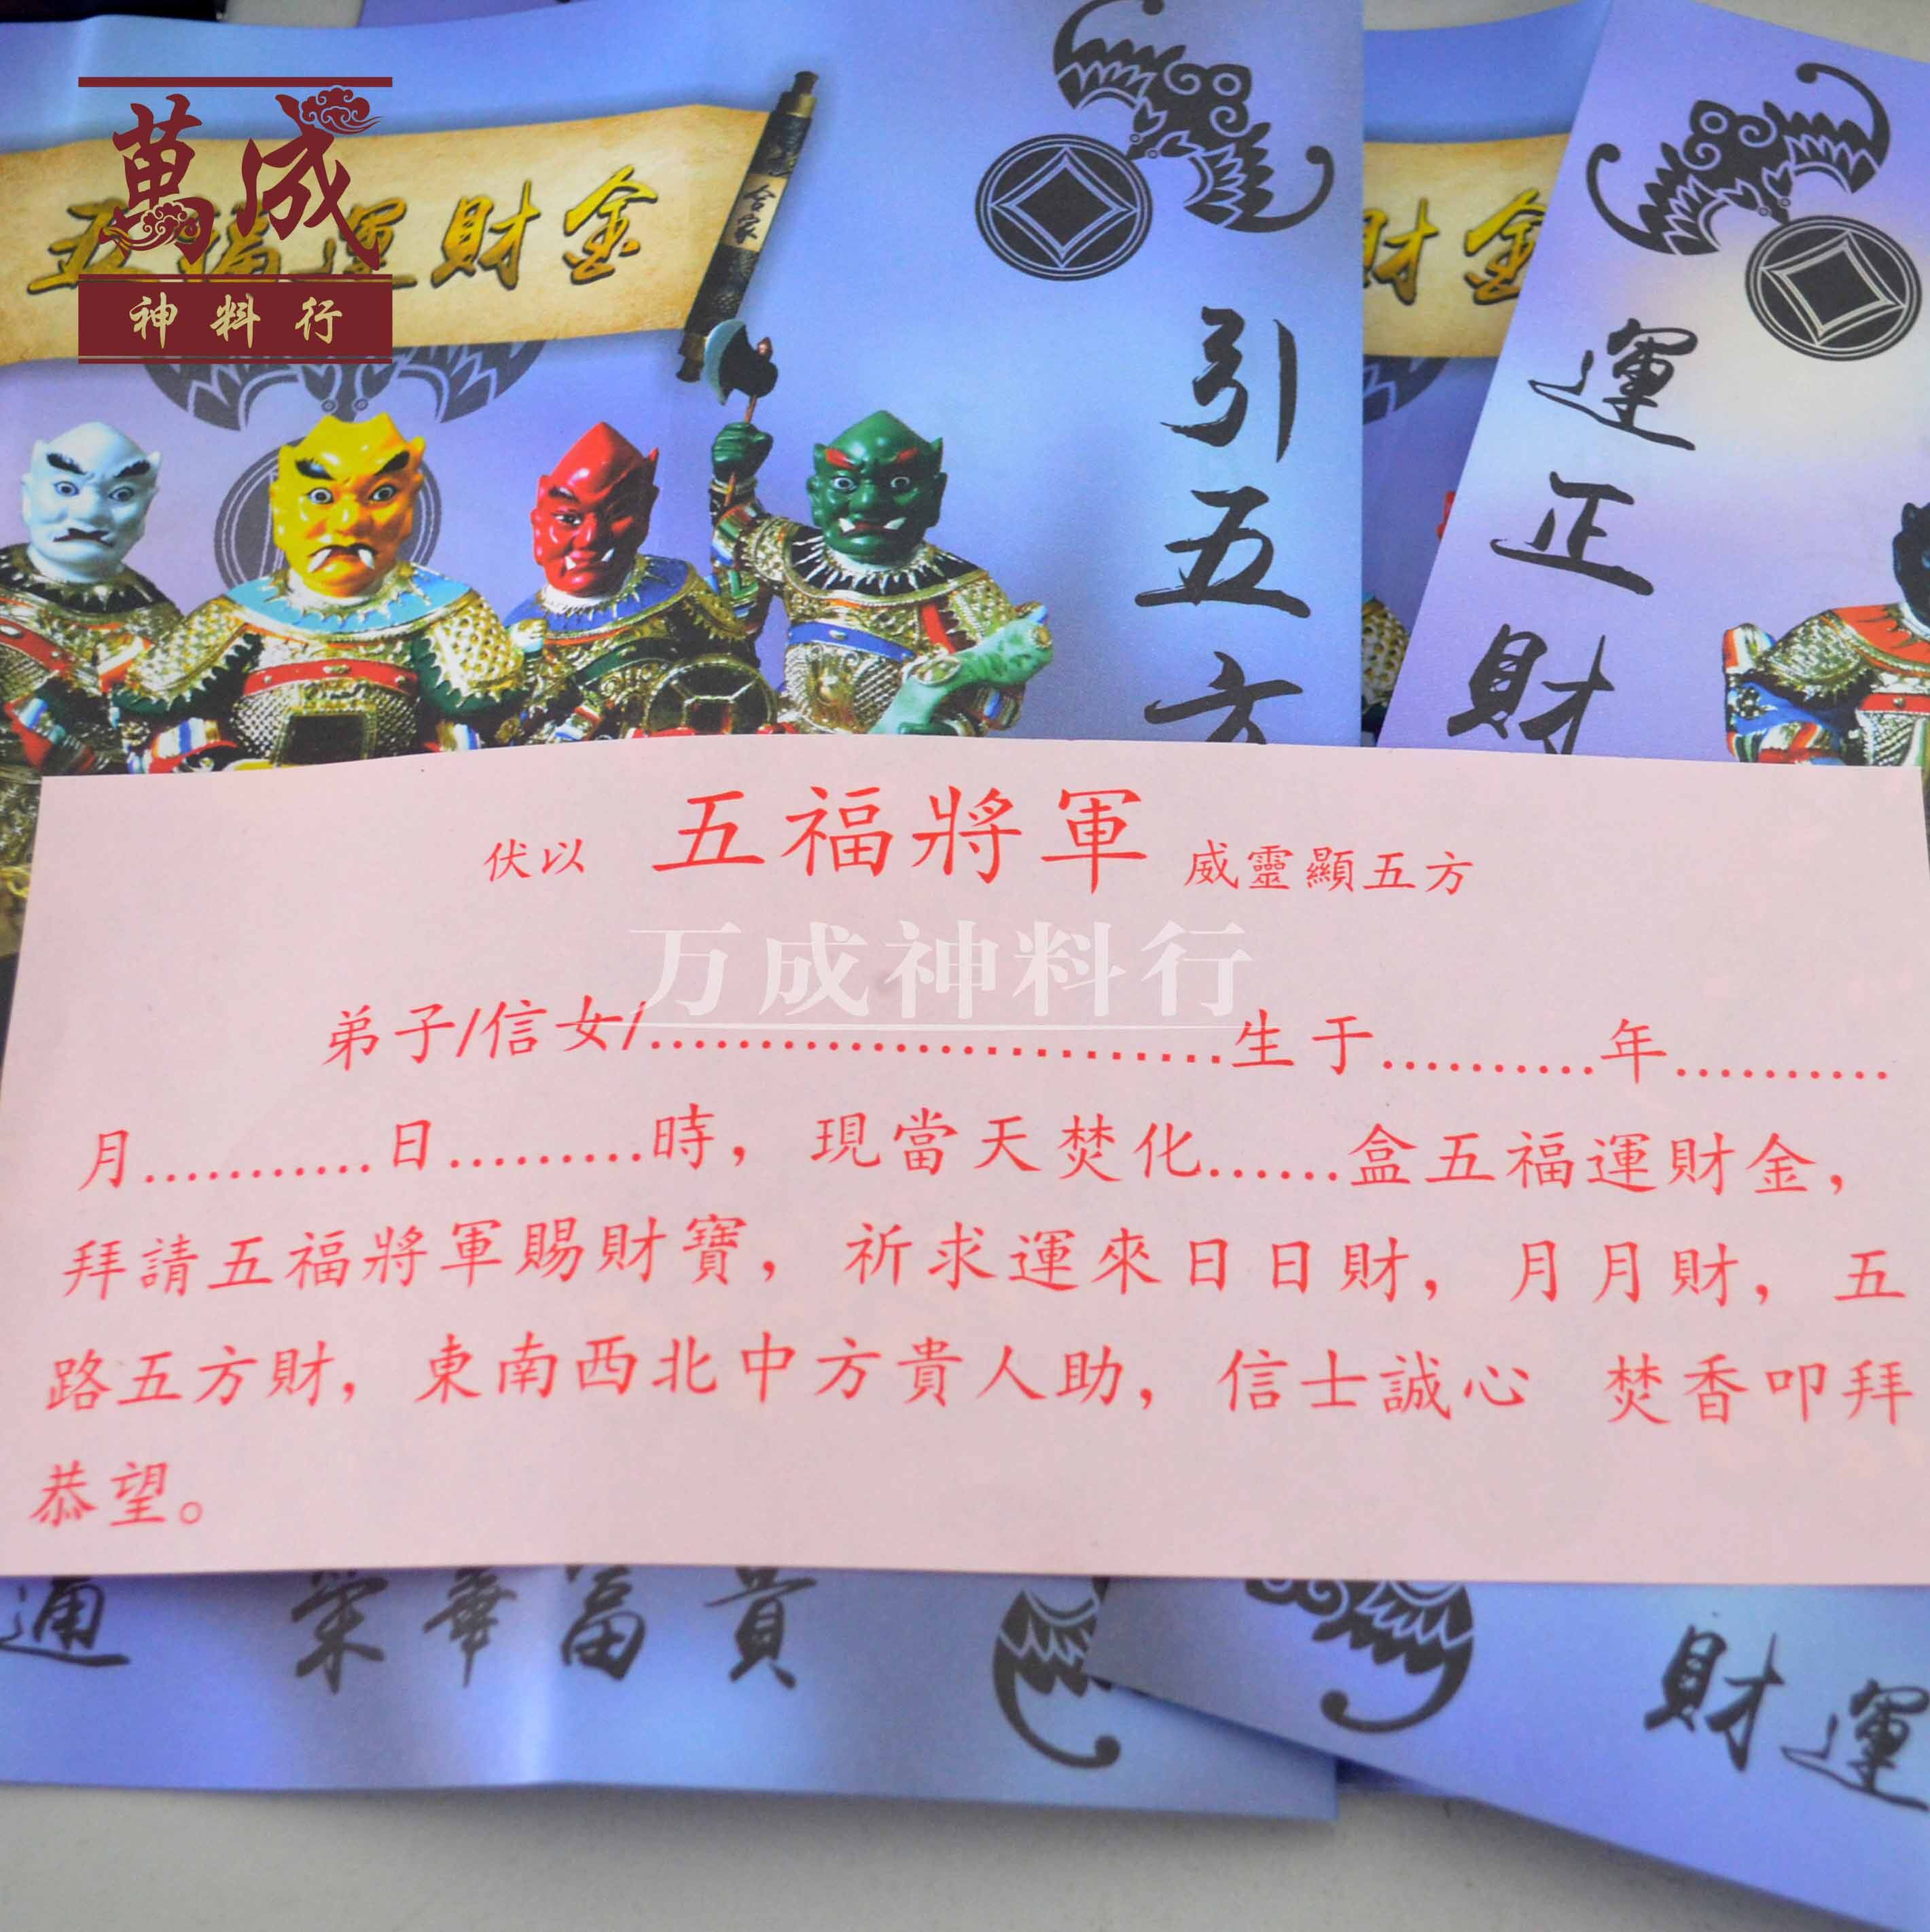 萬成
神料行
五福運財金
合家
引五方
財金
運正財
伏以 五福將軍 威靈顯五方
万成神料行
弟子/信女/..........................生于..........年..........
月...........日.........時，現當天焚化......盒五福運財金，
拜請五福將軍賜財寶，祈求運來日日財，月月財，五
路五方財，東南西北中方貴人助，信士誠心 焚香叩拜
恭望。
通 榮華富貴
財運